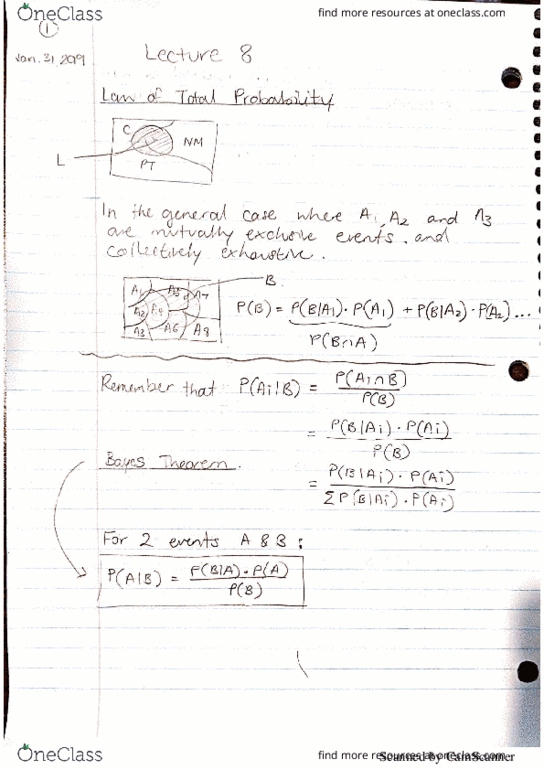 OneClass
find more resources at oneclass.com
1
Jan. 31, 2019
Lecture 8
Law of Total Probability
C
NM
L
PT
In the general case where A1, A2 and A3
are mutually exclusive events, and
collectively exhaustive.
B
A1 A5 A7
A2 A4
A3 A6 A8
P(B) = P(B|A1)·P(A1) + P(B|A2)·P(A2) ...
P(B∩A)
Remember that P(Ai|B) = P(Ai∩B) / P(B)
= P(B|Ai)·P(Ai) / P(B)
Bayes Theorem.
= P(B|Ai)·P(Ai) / ΣP(B|Ai)·P(Ai)
For 2 events A & B:
P(A|B) = P(B|A)·P(A) / P(B)
OneClass
find more resources at oneclass.com
Scanned by CamScanner